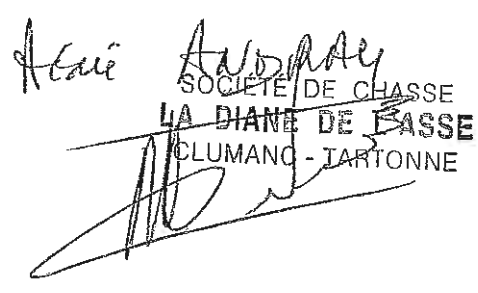 SOCIÉTÉ DE CHASSE
LA DIANE DE BASSE
CLUMANC - TARTONNE